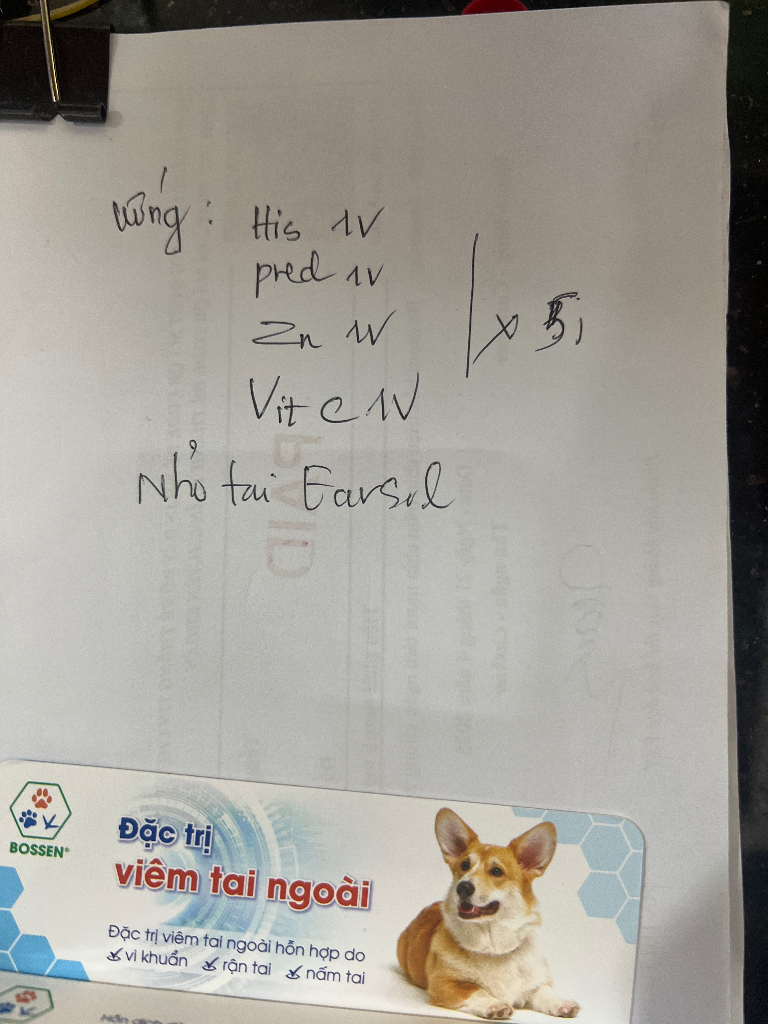 uống: His 1V
pred 1V
Zn 1V
x 5j
Vit C 1V
Nhỏ tai Earsol
BOSSEN®
Đặc trị
viêm tai ngoài
Đặc trị viêm tai ngoài hỗn hợp do
vi khuẩn rận tai nấm tai